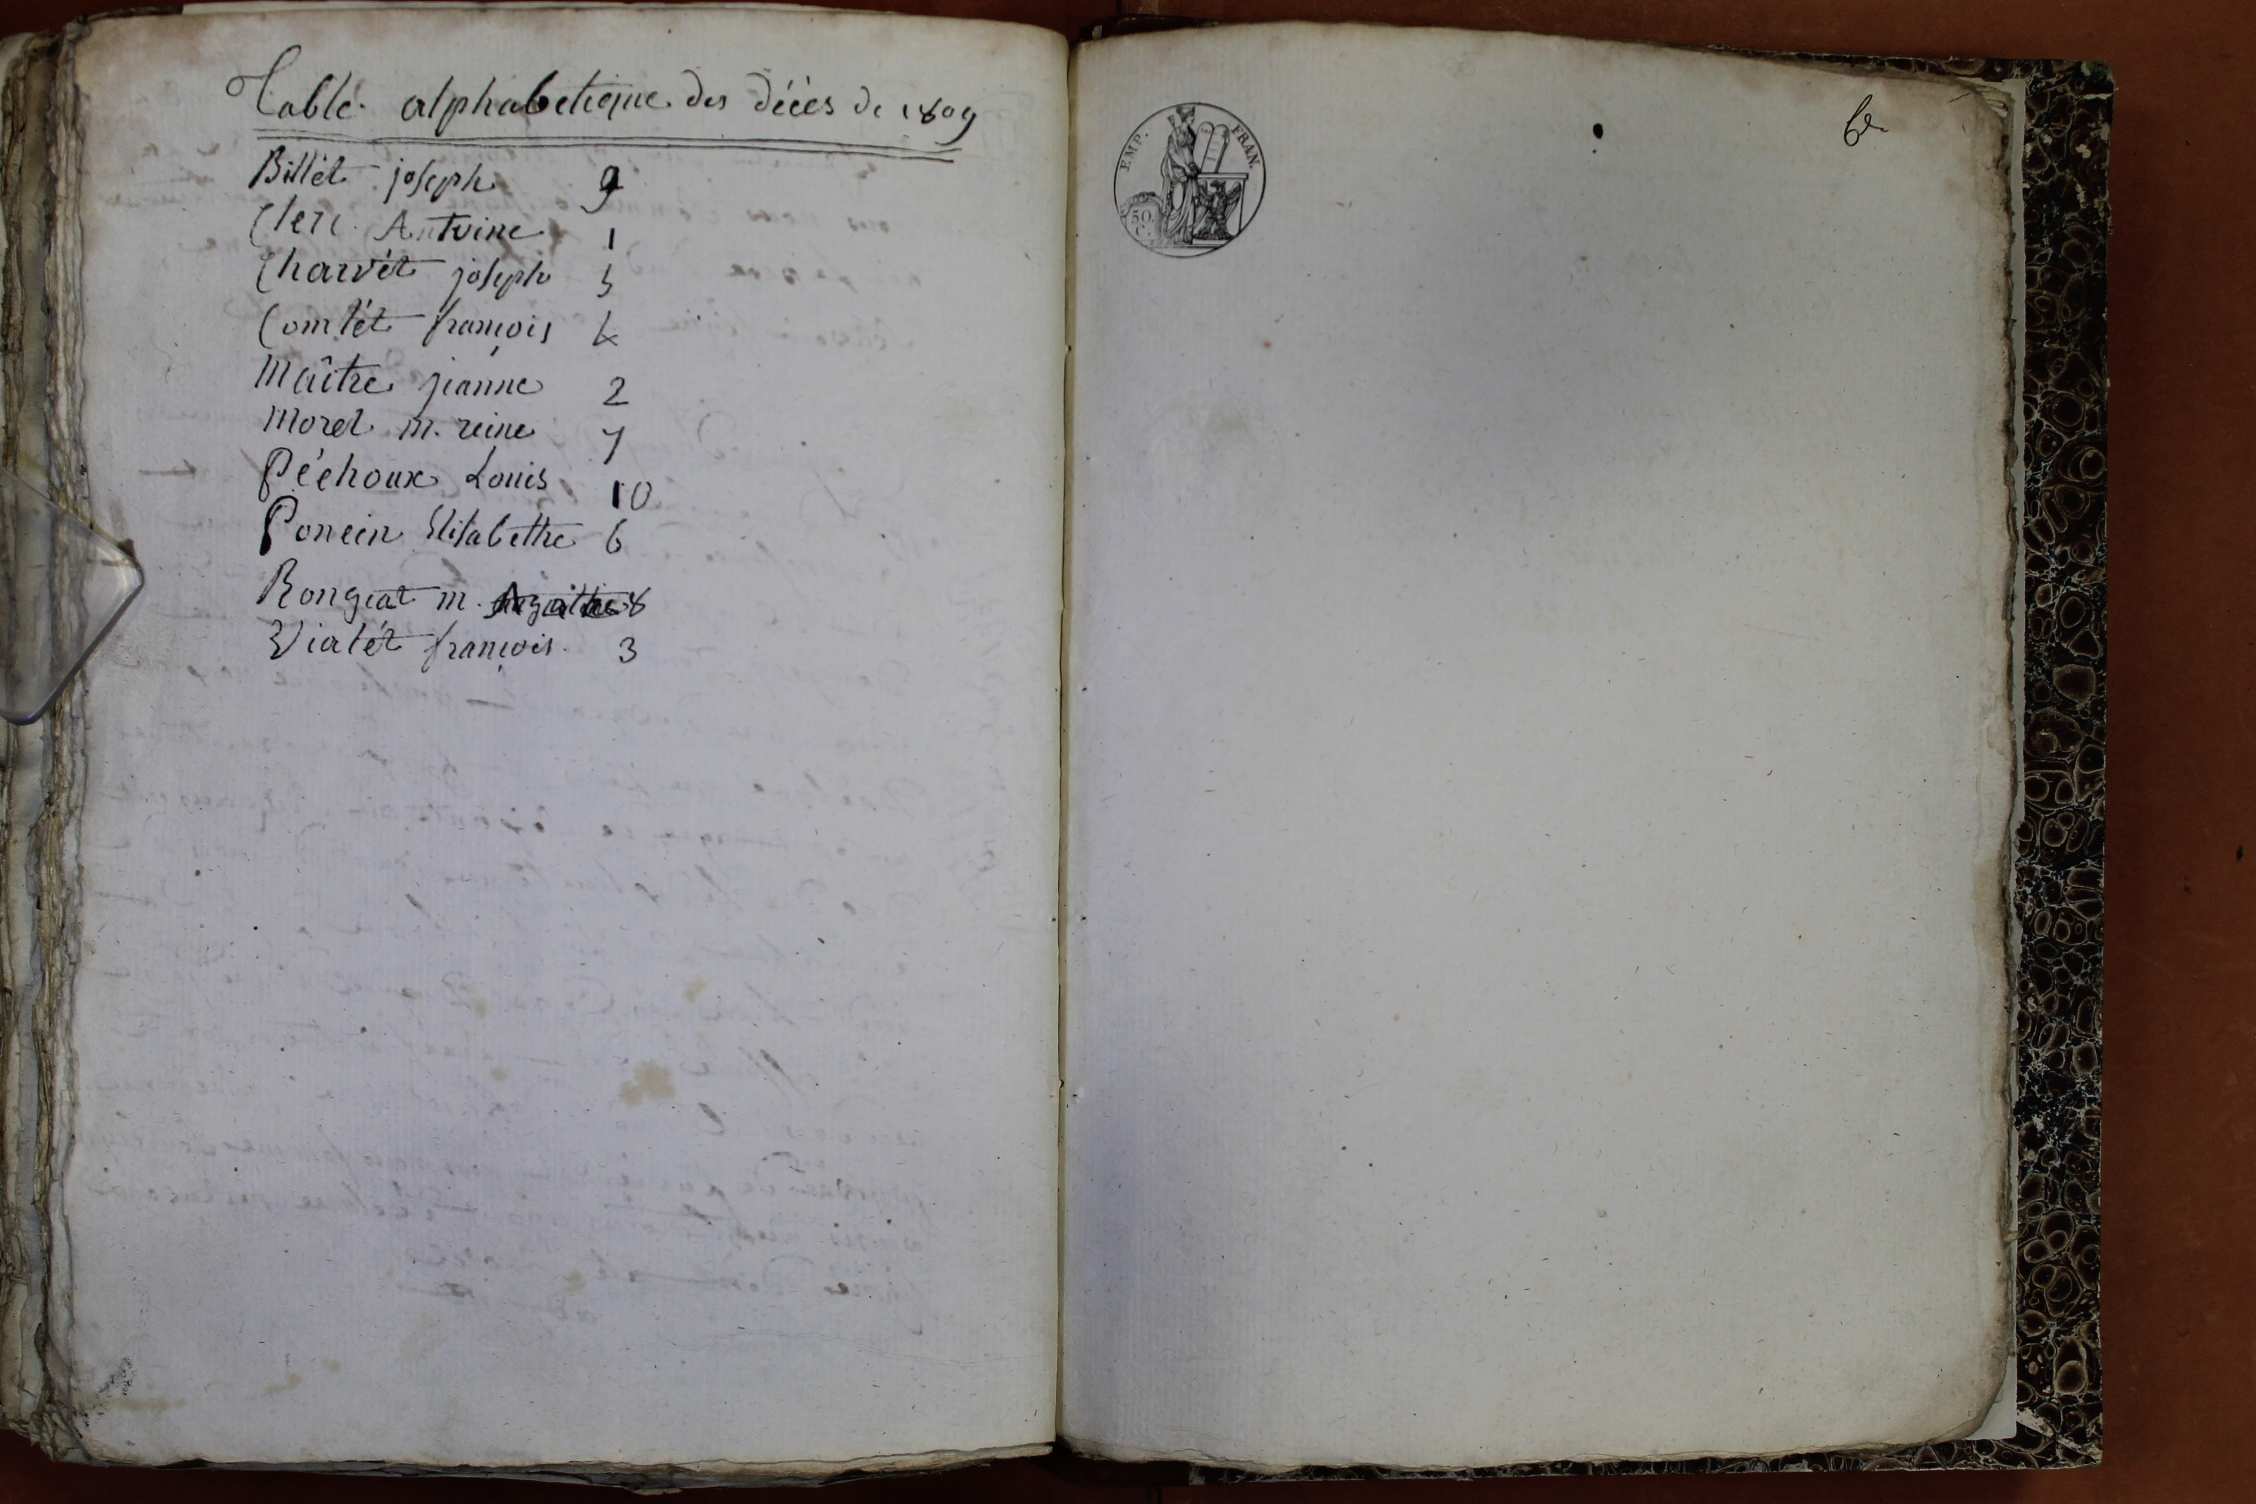 Table alphabetique des décès de 1809
Billét joseph 9
Clerc Antoine 1
Charvét joseph 5
Comtét françois 4
Maître jeanne 2
Morel m. reine 7
Péchoux Louis 10
Poncin Elisabethe 6
Rongeat m. Agathe 8
Vialét françois. 3
EMP. FRAN.
50.
C.
6e.